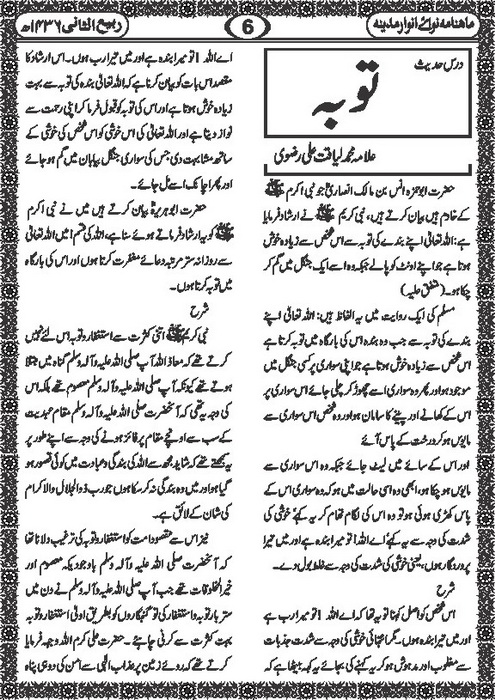 ماہنامہ نوائے انوار مدینہ
6
ربیع الثانی ۱۴۳۶ھ
درس حدیث
توبہ
علامہ محمد لیاقت علی رضوی
حضرت ابو حمزہ انس بن مالک انصاریؓ جو نبی اکرم ﷺ
کے خادم ہیں بیان کرتے ہیں، نبی کریم ﷺ نے ارشاد فرمایا
ہے: اللہ تعالیٰ اپنے بندے کی توبہ سے اس شخص سے زیادہ خوش
ہوتا ہے جو اپنے اونٹ کو پالے جبکہ وہ اسے ایک جنگل میں گم کر
چکا ہو۔ (متفق علیہ)
مسلم کی ایک روایت میں یہ الفاظ ہیں: اللہ تعالیٰ اپنے
بندے کی توبہ سے جب وہ بندہ اس کی بارگاہ میں توبہ کرتا ہے
اس شخص سے زیادہ خوش ہوتا ہے جو اپنی سواری پر کسی جنگل میں
موجود ہو اور پھر وہ سواری اسے چھوڑ کر چلی جائے اس سواری پر
اس کے کھانے اور پینے کا سامان ہو اور وہ شخص اس سواری سے
مایوس ہو کر درخت کے پاس آئے
اور اس کے سائے میں لیٹ جائے جبکہ وہ اس سواری سے
مایوس ہو چکا ہو، ابھی وہ اسی حالت میں ہو کہ وہ سواری اس کے
پاس کھڑی ہوئی ہو تو وہ اس کی لگام تھام کر یہ کہے خوشی کی
شدت کی وجہ سے یہ کہے: اے اللہ! تو میرا بندہ ہے اور میں تیرا
پروردگار ہوں، یعنی خوشی کی شدت کی وجہ سے غلط بول دے۔
شرح
اس شخص کو اصل کہنا تو یہ تھا کہ اے اللہ! تو میرا رب ہے
اور میں تیرا بندہ ہوں۔ مگر انتہائی خوشی کی وجہ سے شدت جذبات
سے مغلوب اور مدہوش ہو کر یہ کہنے کی بجائے یہ کہہ بیٹھا ہے کہ
اے اللہ! تو میرا بندہ ہے اور میں تیرا رب ہوں۔ اس ارشاد کا
مقصد اس بات کو بیان کرنا ہے کہ اللہ تعالیٰ بندہ کی توبہ سے بہت
زیادہ خوش ہوتا ہے اور اس کی توبہ کو قبول فرما کر اپنی رحمت سے
نواز دیتا ہے اور اللہ تعالیٰ کی اس خوشی کو اس شخص کی خوشی کے
ساتھ مشابہت دی جس کی سواری جنگل بیابان میں گم ہو جائے
اور پھر اچانک اسے مل جائے۔
حضرت ابوہریرہؓ بیان کرتے ہیں میں نے نبی اکرم
ﷺ کو یہ ارشاد فرماتے ہوئے سنا ہے، اللہ کی قسم! میں اللہ تعالیٰ
سے روزانہ ستر مرتبہ دعائے مغفرت کرتا ہوں اور اس کی بارگاہ
میں توبہ کرتا ہوں۔
شرح
نبی کریم ﷺ اتنی کثرت سے استغفار و توبہ اس لئے نہیں
کرتے تھے کہ معاذ اللہ آپ صلی اللہ علیہ وآلہ وسلم گناہ میں مبتلا
ہوتے تھے کیونکہ آپ صلی اللہ علیہ وآلہ وسلم معصوم تھے بلکہ اس
کی وجہ یہ تھی کہ آنحضرت صلی اللہ علیہ وآلہ وسلم مقام عبدیت
کے سب سے اونچے مقام پر فائز ہونے کی وجہ سے اپنے طور پر
یہ سمجھتے تھے کہ شاید مجھ سے اللہ کی بندگی و عبادت میں کوئی قصور ہو
گیا ہو اور میں وہ بندگی نہ کر سکا ہوں جو رب ذوالجلال والاکرام
کی شان کے لائق ہے۔
نیز اس سے مقصود امت کو استغفار و توبہ کی ترغیب دلانا تھا
کہ آنحضرت صلی اللہ علیہ وآلہ وسلم باوجودیکہ معصوم اور
خیر المخلوقات تھے جب آپ صلی اللہ علیہ وآلہ وسلم نے دن میں
ستر بار توبہ و استغفار کی تو گنہگاروں کو بطریق اولیٰ استغفار و توبہ
بہت کثرت سے کرنی چاہئے۔ حضرت علی کرم اللہ وجہہ فرمایا
کرتے تھے کہ روئے زمین پر عذاب الٰہی سے امن کی دو ہی پناہ